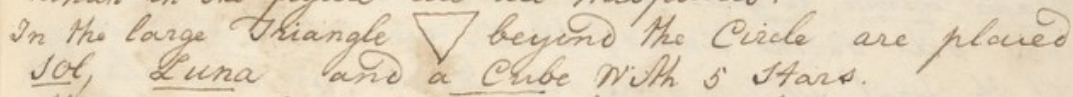 In the large Triangle ▽ beyond the Circle are placed
Sol, Luna and a Cube with 5 Stars.